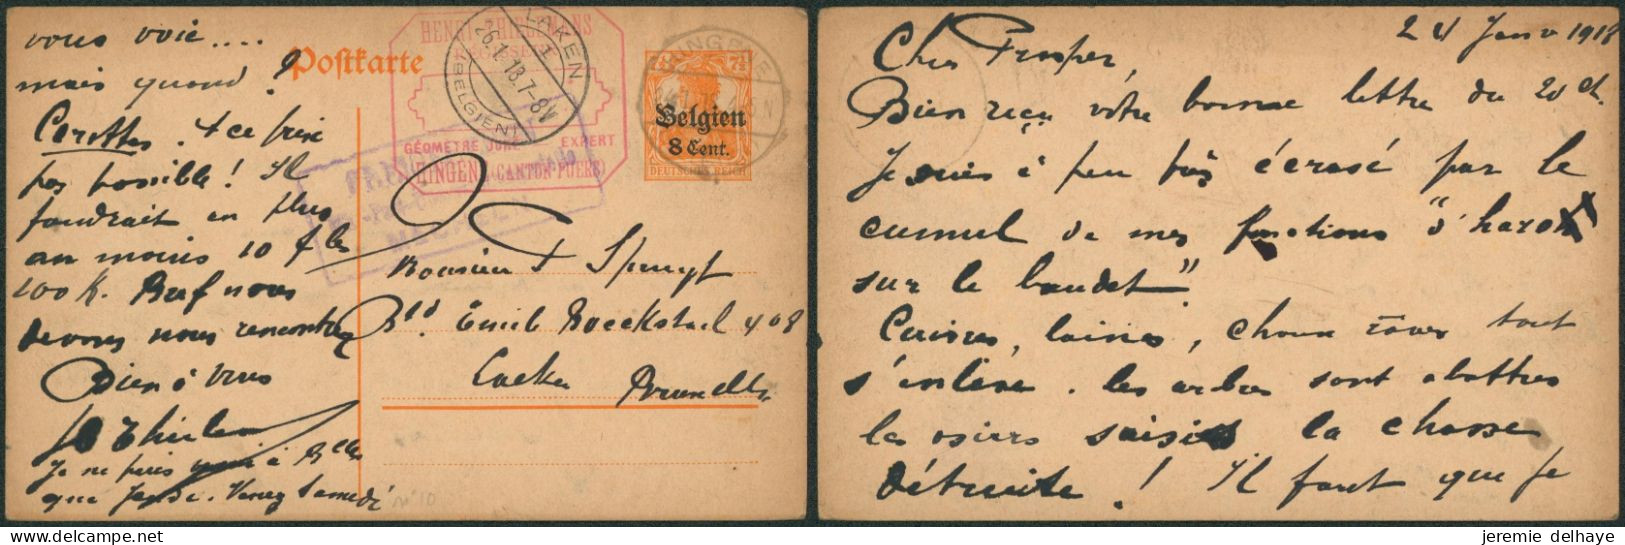 vous voie....
mais quand?
Carottes. à ce prix
pas possible! Il
faudrait en plus
au moins 10 f les
100 K. Bref nous
devons nous rencontrer
Bien à vous
Je ne puis à Bxelles
que Jeudi. Venez Samedi
n° 10
Postkarte
HENRI
GÉOMETRE JURÉ EXPERT
HINGENE (CANTON PUERS)
LAKEN
1
26.1.18.7-8V
(BELGIEN)
7½
Belgien
8 Cent.
DEUTSCHES REICH
Monsieur
Bld Emil Bockstael 408
Laeken Bruxelles
24 Janv 1918
Cher Prosper,
Bien reçu votre bonne lettre du 20 ct.
Je suis à peu près écrasé par le
cumul de mes fonctions "d'haro
sur le baudet".
Cuivres, laines, chevaux tout
s'enlève. les arbres sont abattus
les osiers saisis la chasse
détruite! Il faut que je
jeremie delhaye